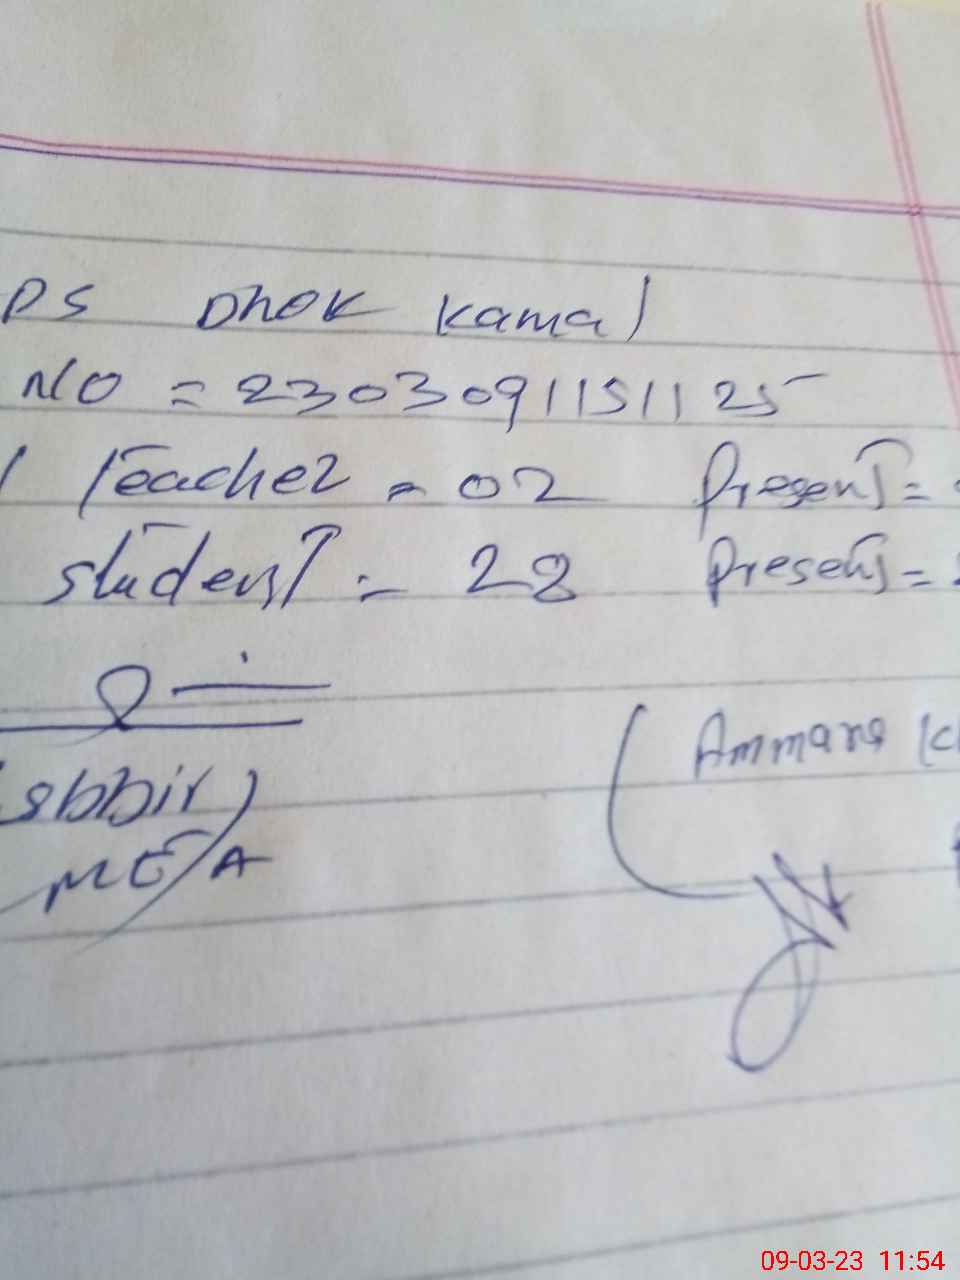 PS Dhok Kamal
NO = 2303091151125
Teacher = 02 Present =
Student = 28 Present =
Ammara
MEA
09-03-23 11:54